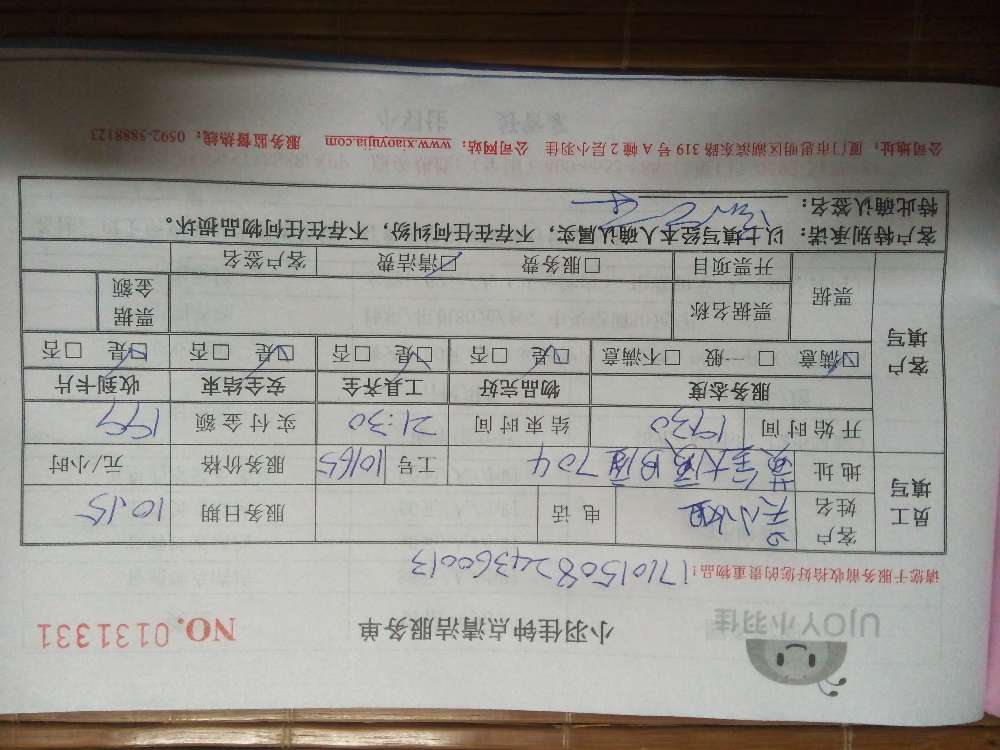 UJOY小羽佳
小羽佳钟点清洁服务单
NO.0131331
请您于服务前收拾好您的贵重物品！
1710150824360013
员工填写
客户姓名 小姐 电话 服务日期 10.15
地址 大厦B座704 工号 10165 服务价格 元/小时
开始时间 1930 结束时间 21:30 实付金额
客户填写
服务态度 物品完好 工具齐全 安全结束 收到卡片
☑满意 □一般 □不满意 ☑是 □否 ☑是 □否 ☑是 □否 ☑是 □否
票据 票据名称 票据金额
开票项目 □服务费 ☑清洁费 客户签名
客户特别承诺：以上填写经本人确认属实，不存在任何纠纷，不存在任何物品损坏。
特此确认签名：
公司地址：厦门市思明区湖滨东路319号A幢2层小羽佳 公司网站：www.xiaoyujia.com 服务监督热线：0592-5888123